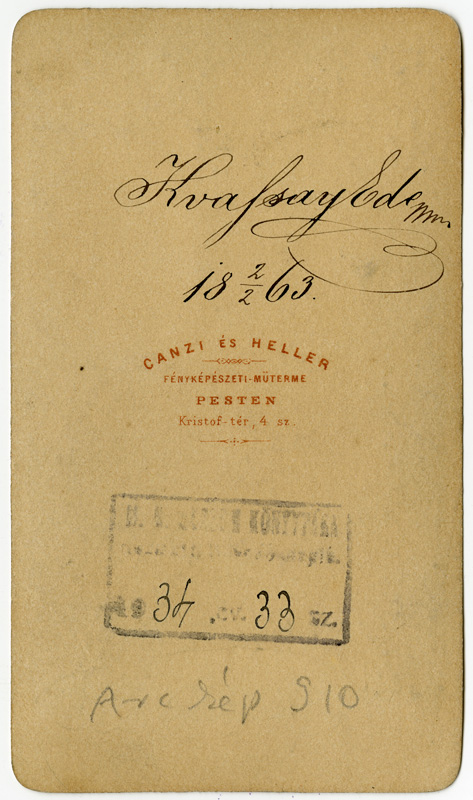 Kvassay Ede
18 2/2 63.
CANZI ÉS HELLER
FÉNYKÉPÉSZETI-MŰTERME
PESTEN
Kristof-tér, 4 sz.
KÖNYVTÁRA
34 33
Arckép 910